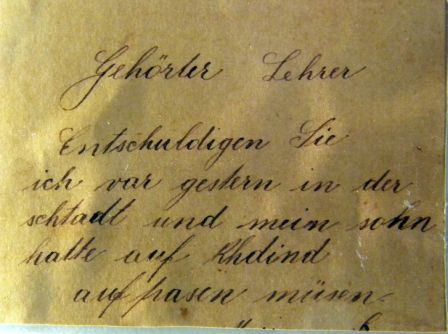 Gehörter Lehrer
Entschuldigen Sie
ich var gestern in der
schtadt und mein sohn
hatte auf Khdind
auf pasen müsen.